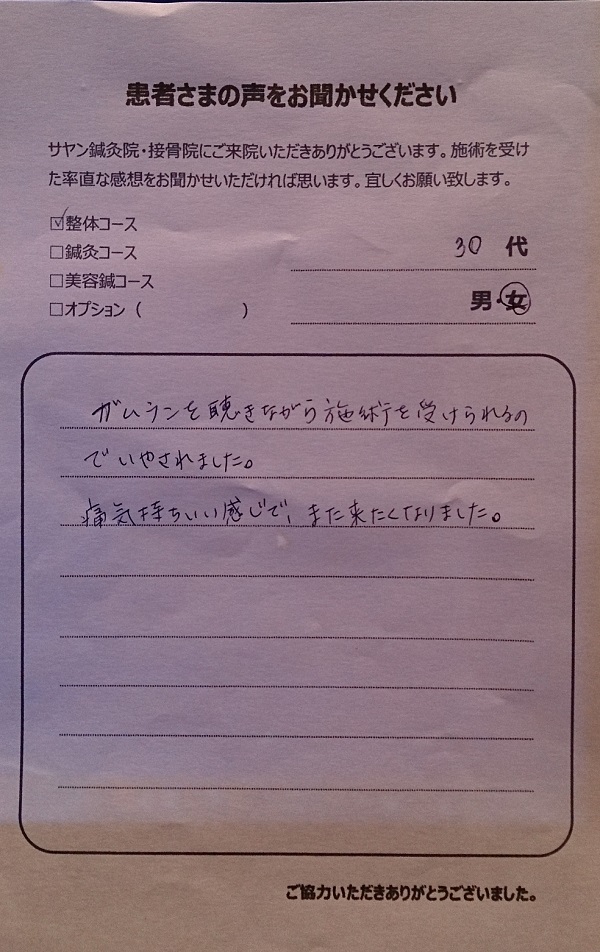 患者さまの声をお聞かせください
サヤン鍼灸院・接骨院にご来院いただきありがとうございます。施術を受け
た率直な感想をお聞かせいただければ思います。宜しくお願い致します。
☑整体コース
□鍼灸コース
30 代
□美容鍼コース
男・女
□オプション（　　　　　　）
ガムランを聴きながら施術を受けられるの
でいやされました。
痛気持ちいい感じで、また来たくなりました。
ご協力いただきありがとうございました。